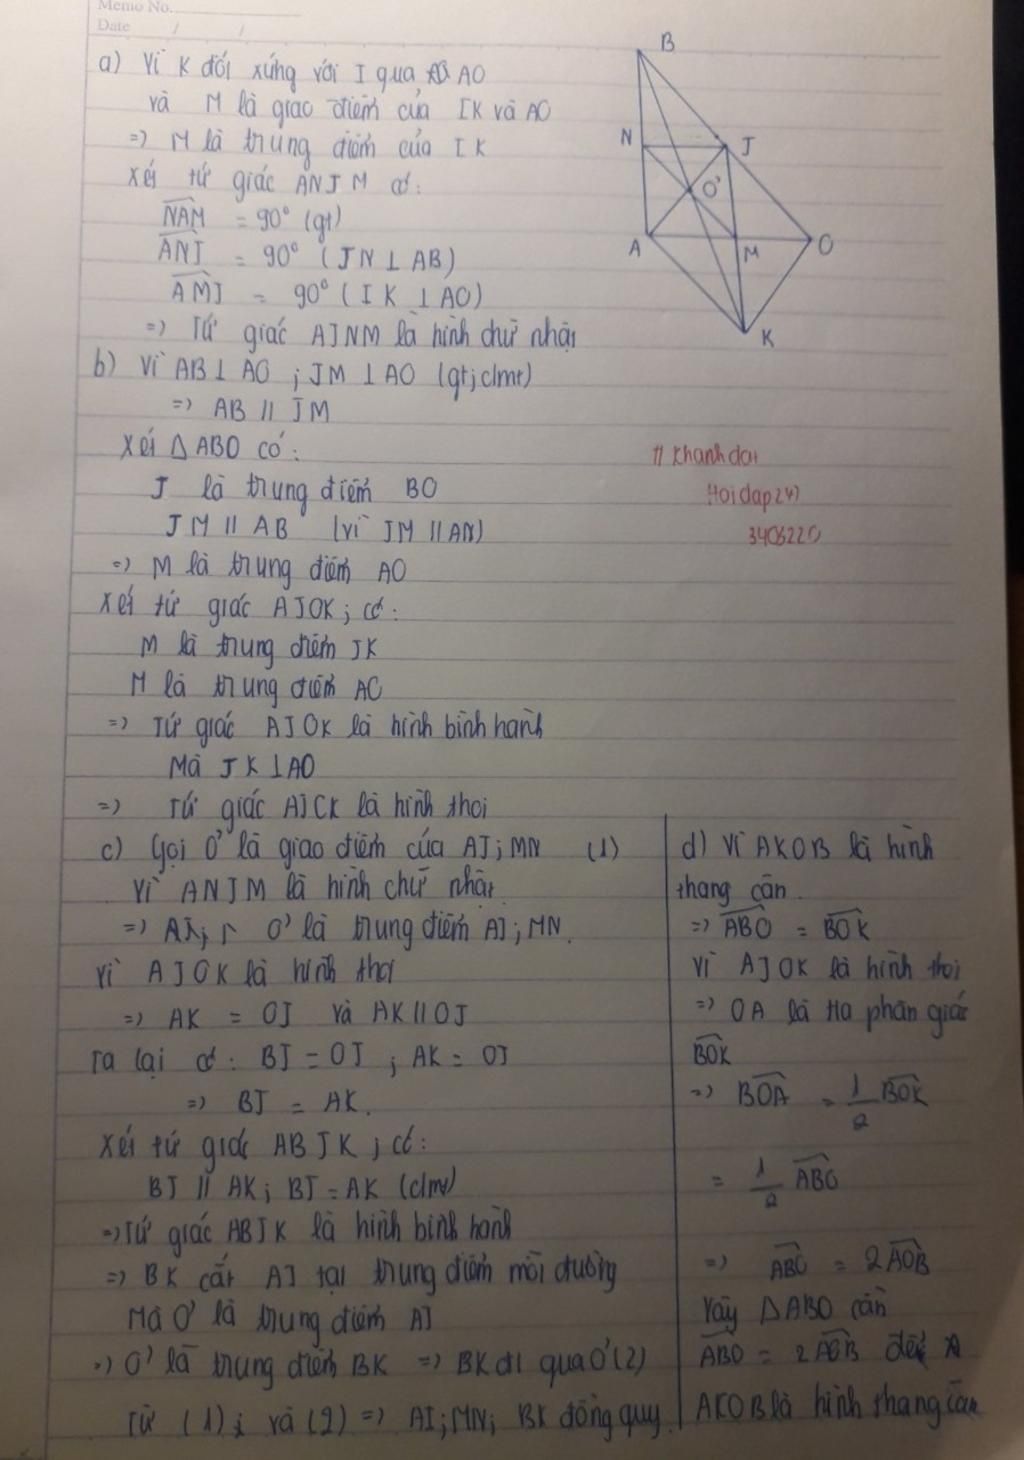 Memo No.
Date / /
a) Vì K đối xứng với I qua AO
và M là giao điểm của IK và AO
=> M là trung điểm của IK
Xét tứ giác ANJM có:
NAM = 90° (gt)
ANJ = 90° (JN ⊥ AB)
AMJ = 90° (IK ⊥ AO)
=> Tứ giác AJNM là hình chữ nhật
b) Vì AB ⊥ AO ; JM ⊥ AO (gt; clmt)
=> AB // JM
Xét Δ ABO có:
J là trung điểm BO
JM // AB (vì JM // AN)
=> M là trung điểm AO
Xét tứ giác AJOK; có:
M là trung điểm JK
M là trung điểm AC
=> Tứ giác AJOK là hình bình hành
Mà JK ⊥ AO
=> Tứ giác AJCK là hình thoi
c) Gọi O' là giao điểm của AJ; MN (1)
Vì ANJM là hình chữ nhật
=> O' là trung điểm AJ; MN.
Vì AJOK là hình thoi
=> AK = OJ và AK // OJ
Ta lại có: BJ = OJ ; AK = OJ
=> BJ = AK.
Xét tứ giác ABJK; có:
BJ // AK; BJ = AK (clmt)
=> Tứ giác ABJK là hình bình hành
=> BK cắt AJ tại trung điểm mỗi đường
Mà O' là trung điểm AJ
=> O' là trung điểm BK => BK đi qua O' (2)
Từ (1); và (2) => AI; MN; BK đồng quy.
d) Vì AKOB là hình
thang cân.
=> ABO = BOK
Vì AJOK là hình thoi
=> OA là tia phân giác
BOK
=> BOA = 1/2 BOK
= 1/2 ABO
=> ABO = 2AOB
Vậy Δ ABO cần
ABO = 2AOB để
AKOB là hình thang cân
B
N
J
O'
A
M
O
K
Khanhdat
Hoidap247
3403220